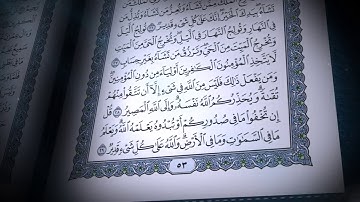 تَشَآءُ بِيَدِكَ ٱلْخَيْرُ إِنَّكَ عَلَىٰ كُلِّ شَىْءٍ قَدِيرٌ ٢٦ تُولِجُ ٱلَّيْلَ
فِى ٱلنَّهَارِ وَتُولِجُ ٱلنَّهَارَ فِى ٱلَّيْلِ وَتُخْرِجُ ٱلْحَىَّ مِنَ ٱلْمَيِّتِ
وَتُخْرِجُ ٱلْمَيِّتَ مِنَ ٱلْحَىِّ وَتَرْزُقُ مَن تَشَآءُ بِغَيْرِ حِسَابٍ ٢٧
لَّا يَتَّخِذِ ٱلْمُؤْمِنُونَ ٱلْكَٰفِرِينَ أَوْلِيَآءَ مِن دُونِ ٱلْمُؤْمِنِينَ
وَمَن يَفْعَلْ ذَٰلِكَ فَلَيْسَ مِنَ ٱللَّهِ فِى شَىْءٍ إِلَّآ أَن تَتَّقُوا۟ مِنْهُمْ
تُقَىٰةً وَيُحَذِّرُكُمُ ٱللَّهُ نَفْسَهُۥ وَإِلَى ٱللَّهِ ٱلْمَصِيرُ ٢٨ قُلْ
إِن تُخْفُوا۟ مَا فِى صُدُورِكُمْ أَوْ تُبْدُوهُ يَعْلَمْهُ ٱللَّهُ وَيَعْلَمُ
مَا فِى ٱلسَّمَٰوَٰتِ وَمَا فِى ٱلْأَرْضِ وَٱللَّهُ عَلَىٰ كُلِّ شَىْءٍ قَدِيرٌ ٢٩
٥٣